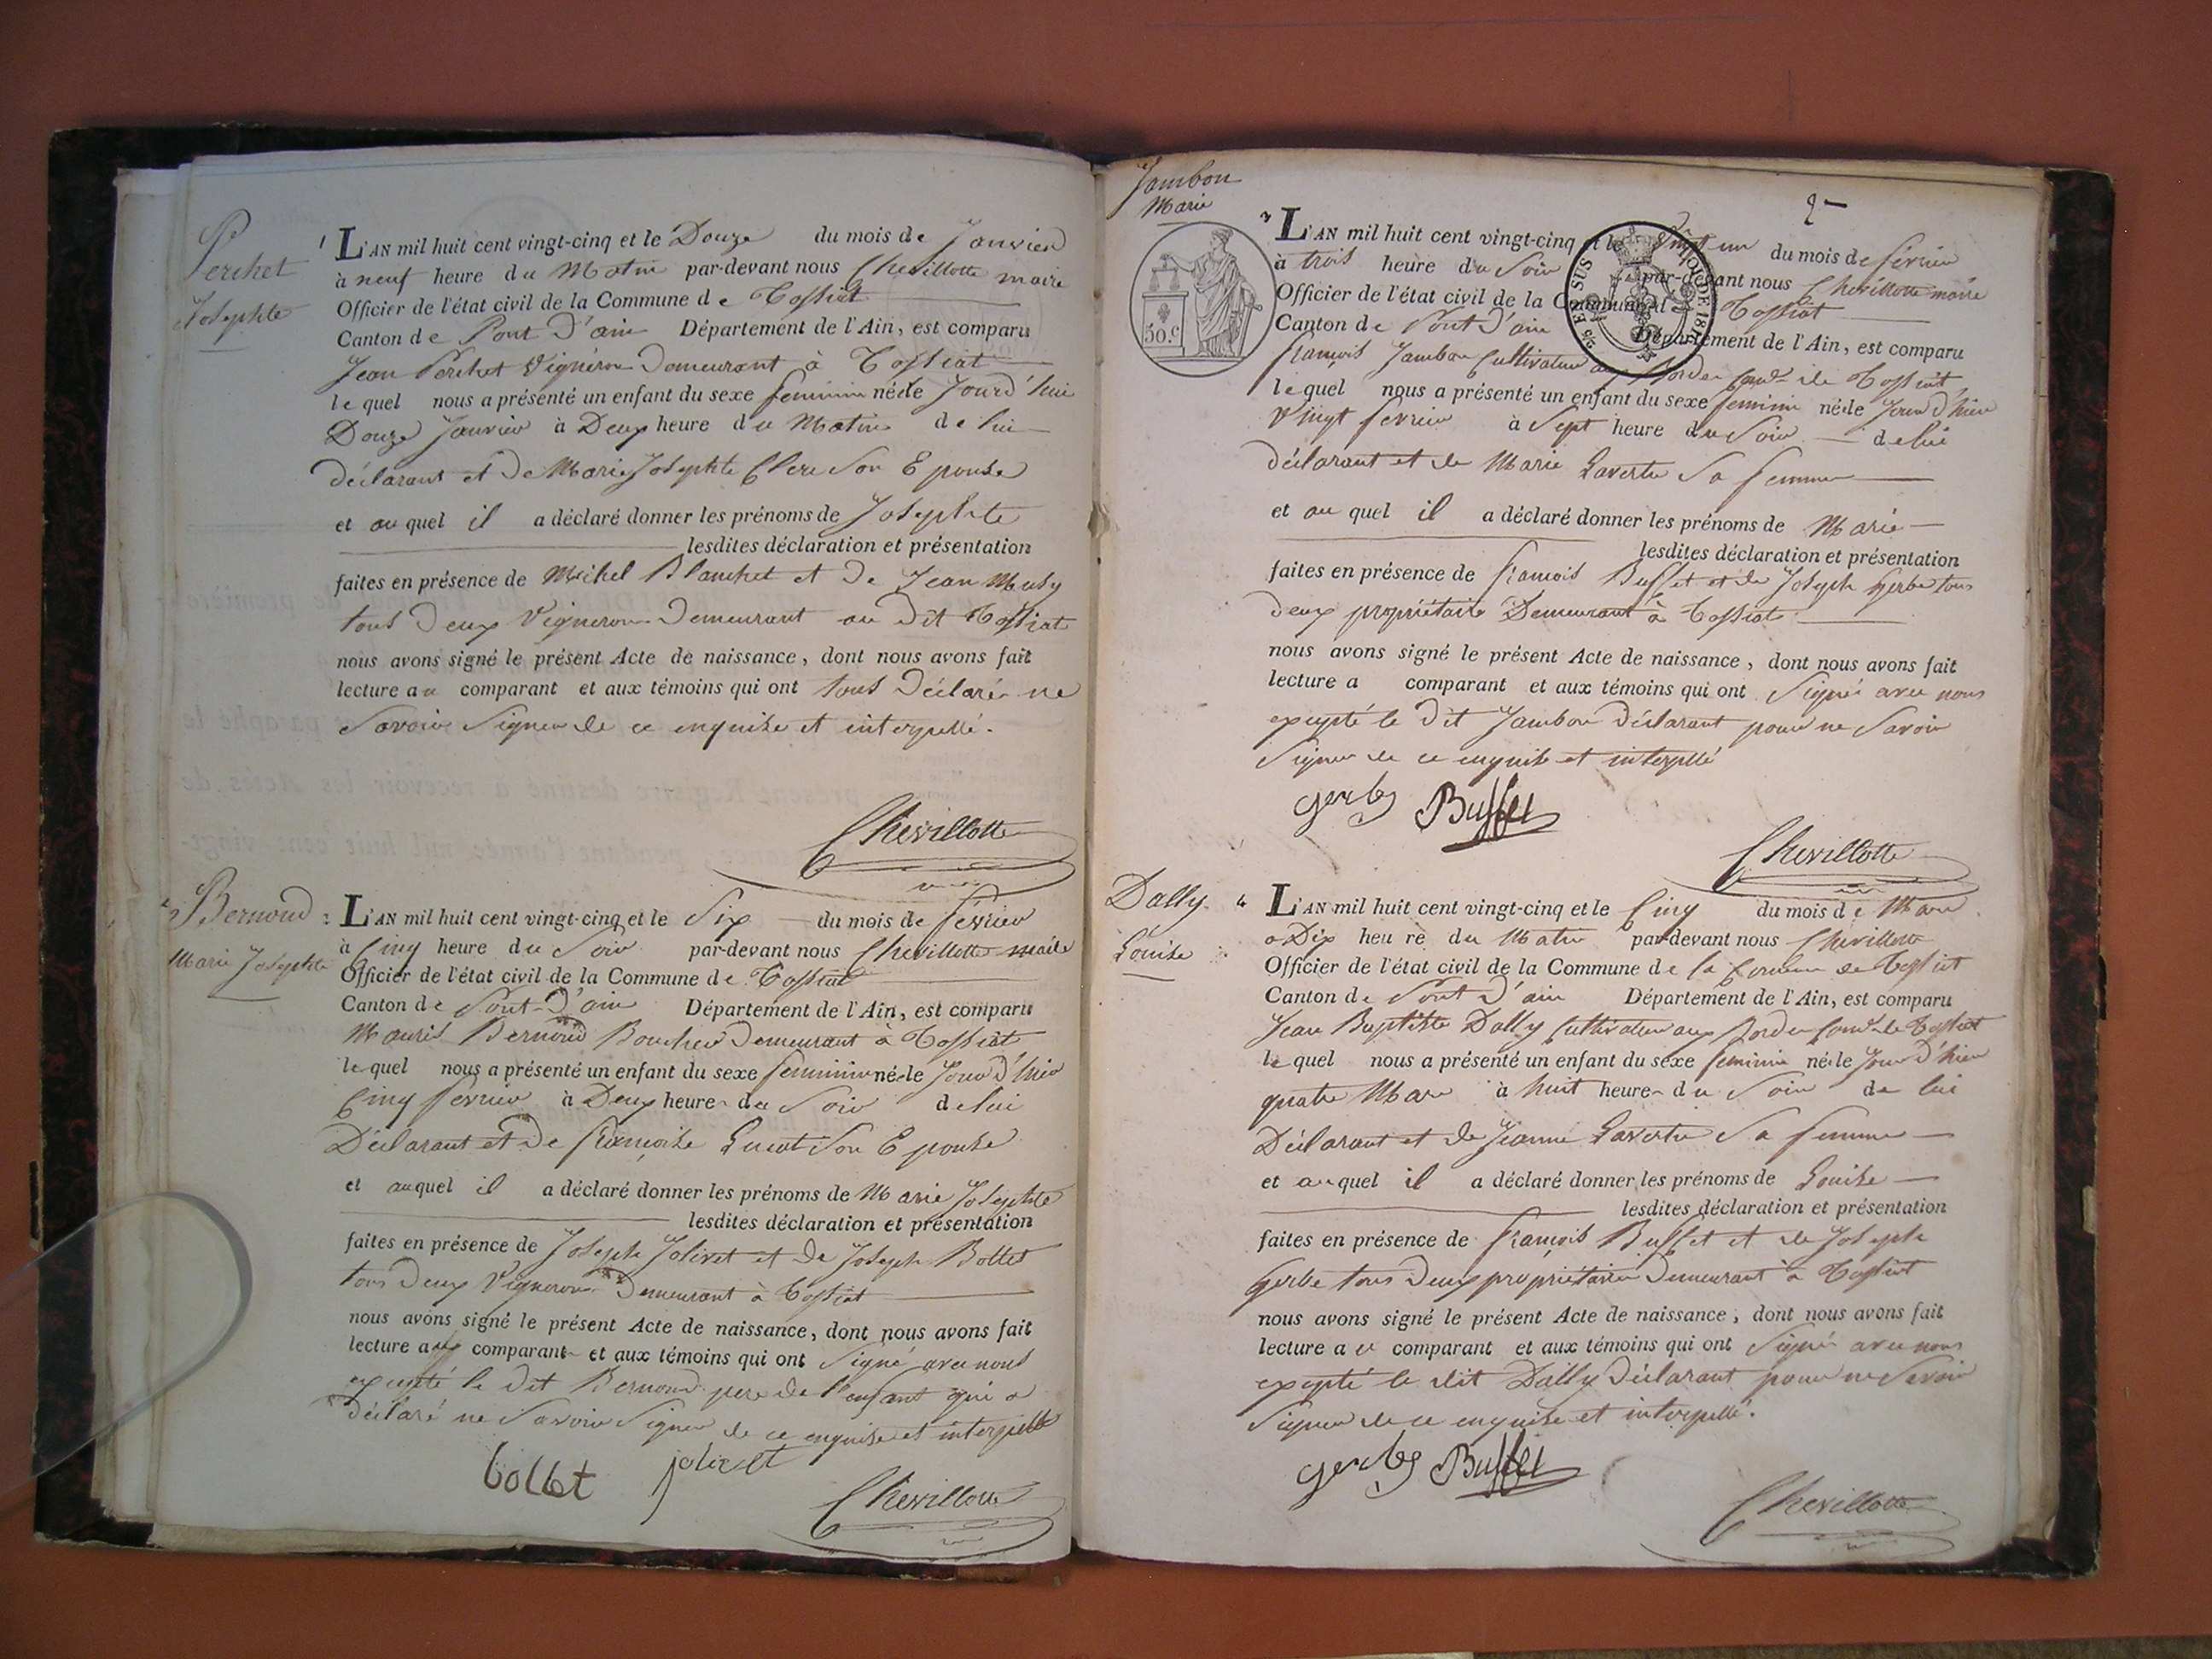 Perchet
Josephte
1 L'AN mil huit cent vingt-cinq et le Douze du mois de Janvier
à neuf heure du Matin par-devant nous Chevillotte maire
Officier de l'état civil de la Commune de Tossiat
Canton de Pont D'ain Département de l'Ain, est comparu
Jean Perchet Vigneron Demeurant à Tossiat
lequel nous a présenté un enfant du sexe feminin né le Jourd'hui
Douze Janvier à Deux heure du Matin de lui
déclarant et De Marie Josephte Clerc Son Epouse
et au quel il a déclaré donner les prénoms de Josephte
lesdites déclaration et présentation
faites en présence de Michel Blanchet et De Jean Musy
tous Deux Vigneron Demeurant au Dit Tossiat
nous avons signé le présent Acte de naissance, dont nous avons fait
lecture au comparant et aux témoins qui ont tous Déclaré ne
Savoir Signer de ce enquise et interpellé.
Chevillotte
Bernoud
Marie Josephte
2 L'AN mil huit cent vingt-cinq et le Six du mois de février
à Cinq heure du Soir par-devant nous Chevillotte maire
Officier de l'état civil de la Commune de Tossiat
Canton de Pont-D'ain Département de l'Ain, est comparu
Mauris Bernoud Boucher Demeurant à Tossiat
lequel nous a présenté un enfant du sexe feminin né le Jour d'hier
Cinq fevrier à Deux heure du Soir de lui
Déclarant et De françoise Son Epouse
et auquel il a déclaré donner les prénoms de Marie Josephte
lesdites déclaration et présentation
faites en présence de Joseph Jolivet et De Joseph Bollet
tous Deux Vigneron Demeurant à Tossiat
nous avons signé le présent Acte de naissance, dont nous avons fait
lecture aux comparant et aux témoins qui ont Signé avec nous
excepté le Dit Bernoud pere de l'enfant qui a
déclaré ne Savoir Signer de ce enquise et interpellé
bollet jolivet
Chevillotte
Jambon
Marie
2
50.C
3 L'AN mil huit cent vingt-cinq et le Vingt un du mois de févrieu
à trois heure du Soir par-devant nous Chevillotte maire
Officier de l'état civil de la Commune de Tossiat
Canton de Pont D'ain Département de l'Ain, est comparu
françois Jambon Cultivateur aux de Tossiat
lequel nous a présenté un enfant du sexe feminin né le Jour d'hier
Vingt fevrier à Sept heure du Soir de lui
déclarant et de Marie Lavertu Sa femme
et au quel il a déclaré donner les prénoms de Marie
lesdites déclaration et présentation
faites en présence de françois Buffet et de Joseph Gerbe tous
deux propriétaire Demeurant à Tossiat
nous avons signé le présent Acte de naissance, dont nous avons fait
lecture a comparant et aux témoins qui ont Signé avec nous
excepté le Dit Jambon Déclarant pour ne Savoir
Signer de ce enquise et interpellé
gerbe Buffet
Chevillotte
Dally
Louise
4 L'AN mil huit cent vingt-cinq et le Cinq du mois de Mars
a Dix heure du Matin par-devant nous Chevillotte
Officier de l'état civil de la Commune de la de Tossiat
Canton de Pont D'ain Département de l'Ain, est comparu
Jean Baptiste Dally Cultivateur aux de Tossiat
lequel nous a présenté un enfant du sexe feminin né le Jour d'hier
quatre Mars à huit heure du Soir de lui
Déclarant et de Jeanne Lavertu Sa femme
et auquel il a déclaré donner les prénoms de Louise
lesdites déclaration et présentation
faites en présence de françois Buffet et de Joseph
Gerbe tous Deux propriétaire Demeurant à Tossiat
nous avons signé le présent Acte de naissance, dont nous avons fait
lecture au comparant et aux témoins qui ont Signé avec nous
excepté le dit Dally Déclarant pour ne Savoir
Signer de ce enquise et interpellé.
gerbe Buffet
Chevillotte